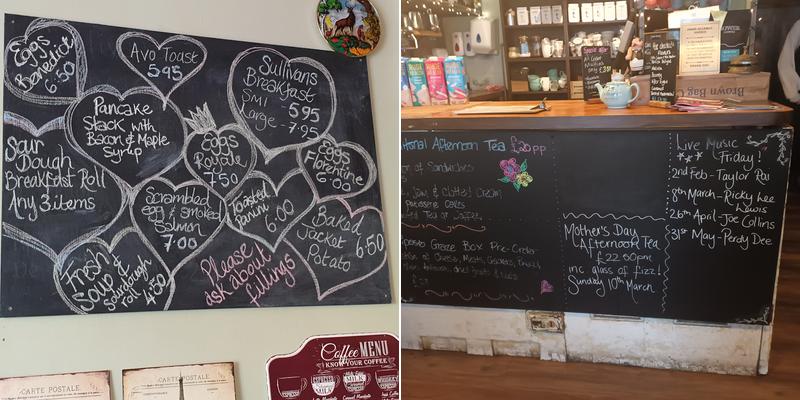 Eggs
Benedict
6.50
Avo Toast
5.95
Sullivans
Breakfast
SMl 5.95
Large - 7.95
Pancake
Stack with
Bacon & Maple
Syrup
Eggs
Royale
7.50
Eggs
Florentine
6.00
Sour
Dough
Breakfast Roll
Any 3 items
Scrambled
egg & smoked
Salmon
7.00
Toasted
Panini
6.00
Baked
Jacket
Potato
6.50
Fresh
Soup &
Sourdough
roll 4.50
Please
ask about
fillings
CARTE POSTALE
CARTE POSTALE
Coffee MENU
KNOW YOUR COFFEE
Brown Bag
itional Afternoon Tea £20pp
of Sandwiches
Jam & Clotted Cream
Patisserie Cakes
Tea or Coffee
Box Pre-Order
of Cheese, Meats,
Mother's Day
Afternoon Tea
£22.50pm
inc glass of fizz!
Sunday 10th March
Live Music
Friday!
2nd Feb - Taylor Pai
8th March - Ricky Lee
Lewis
26th April - Joe Collins
31st May - Perdy Dee